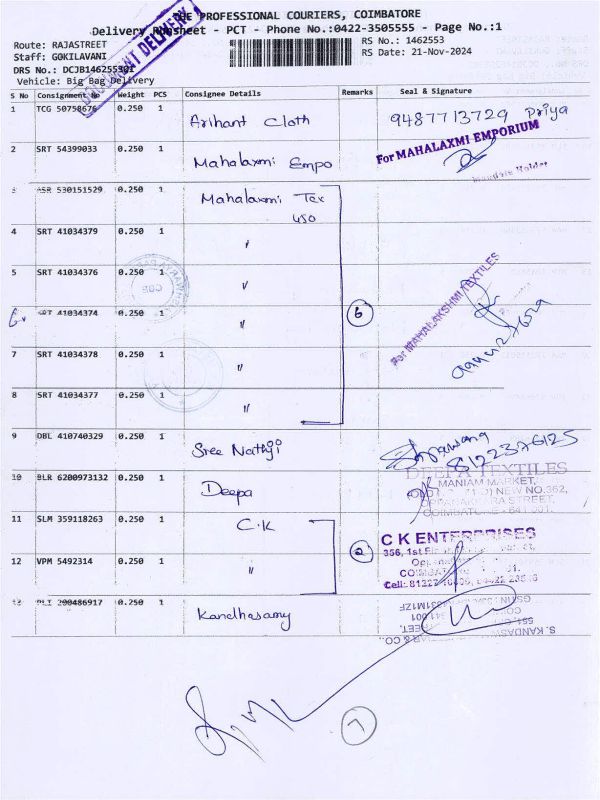 THE PROFESSIONAL COURIERS, COIMBATORE
Delivery Runsheet - PCT - Phone No.:0422-3505555 - Page No.:1
DOCUMENT DELIVERY
Route: RAJASTREET
Staff: GOKILAVANI
DRS No.: DCJB146255301
Vehicle: Big Bag Delivery
RS No.: 1462553
RS Date: 21-Nov-2024
S No Consignment No Weight PCS Consignee Details Remarks Seal & Signature
1 TCG 50758676 0.250 1 Arihant Cloth 9487713729 Priya
2 SRT 54399033 0.250 1 Mahalaxmi Empo For MAHALAXMI EMPORIUM
Mandate Holder
3 ASR 530151529 0.250 1 Mahalaxmi Tex
450
4 SRT 41034379 0.250 1 "
5 SRT 41034376 0.250 1 "
6 SRT 41034374 0.250 1 " 6 For MAHALAKSHMI TEXTILES
7 SRT 41034378 0.250 1 "
8 SRT 41034377 0.250 1 "
9 DBL 410740329 0.250 1 Sree Nathji 8122376125
10 BLR 6200973132 0.250 1 Deepa DEEPA TEXTILES
MANIAM MARKET,
NEW NO.362,
STREET,
COIMBATORE - 641 001.
11 SLM 359118263 0.250 1 C.K C K ENTERPRISES
356, 1st
2
12 VPM 5492314 0.250 1 "
Cell: 81322
13 0.250 1 Kandhasamy
S. KANDASW & CO.,
STREET,
7